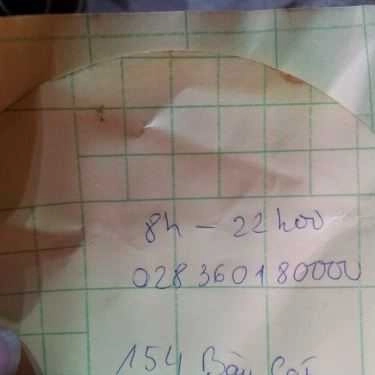 8h - 22h00
028 3601 80000
154 Bàu Cát